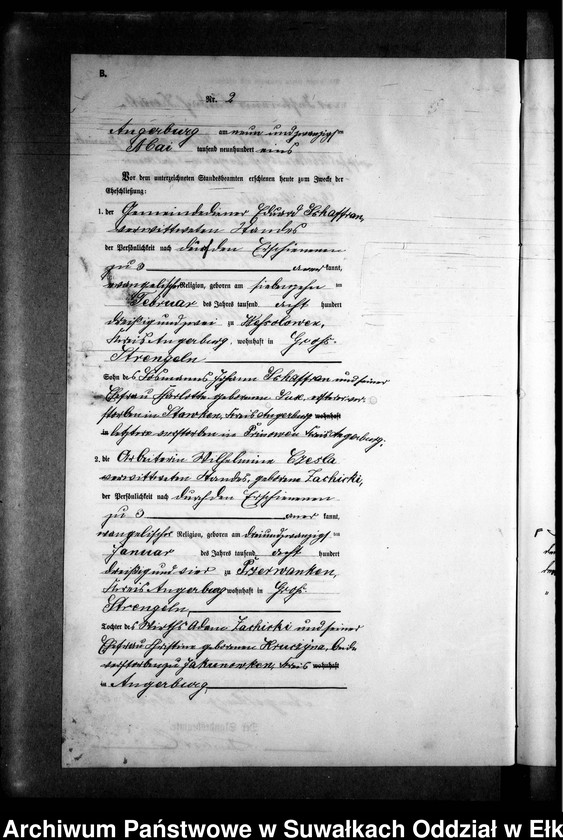 B.
Nr. 2
Angerburg am neun und zwanzigsten
Mai tausend neunhundert eins
Vor dem unterzeichneten Standesbeamten erschienen heute zum Zwecke der
Eheschließung:
1. der Gemeindediener Eduard Schaffran,
verwitweten Standes
der Persönlichkeit nach durch den Erschienenen
zu 3 kannt,
evangelischer Religion, geboren am siebzehn ten
Februar des Jahres tausend acht hundert
dreißig und zwei zu Wessolowen,
Kreis Angerburg, wohnhaft in Groß-
Strengeln
Sohn des Losmanns Johann Schaffran und seiner
Ehefrau Charlotte geborenen Lux, ersterer ver-
storben in Stawken, Kreis Angerburg wohnhaft
in letztere verstorben in Prinowen Kreis Angerburg.
2. die Arbeiterin Wilhelmine Czesla
verwitweten Standes, geborene Zachicki,
der Persönlichkeit nach durch den Erschienenen
zu 3 kannt,
evangelischer Religion, geboren am dreiundzwanzigsten
Januar des Jahres tausend acht hundert
dreißig und vier zu Przerwanken,
Kreis Angerburg wohnhaft in Groß-
Strengeln,
Tochter des Wirths Adam Zachicki und seiner
Ehefrau Christine geborenen Kruczyna, beide
verstorben zu Jakunowken, Kreis wohnhaft
in Angerburg
Archiwum Państwowe w Suwałkach Oddział w Ełk